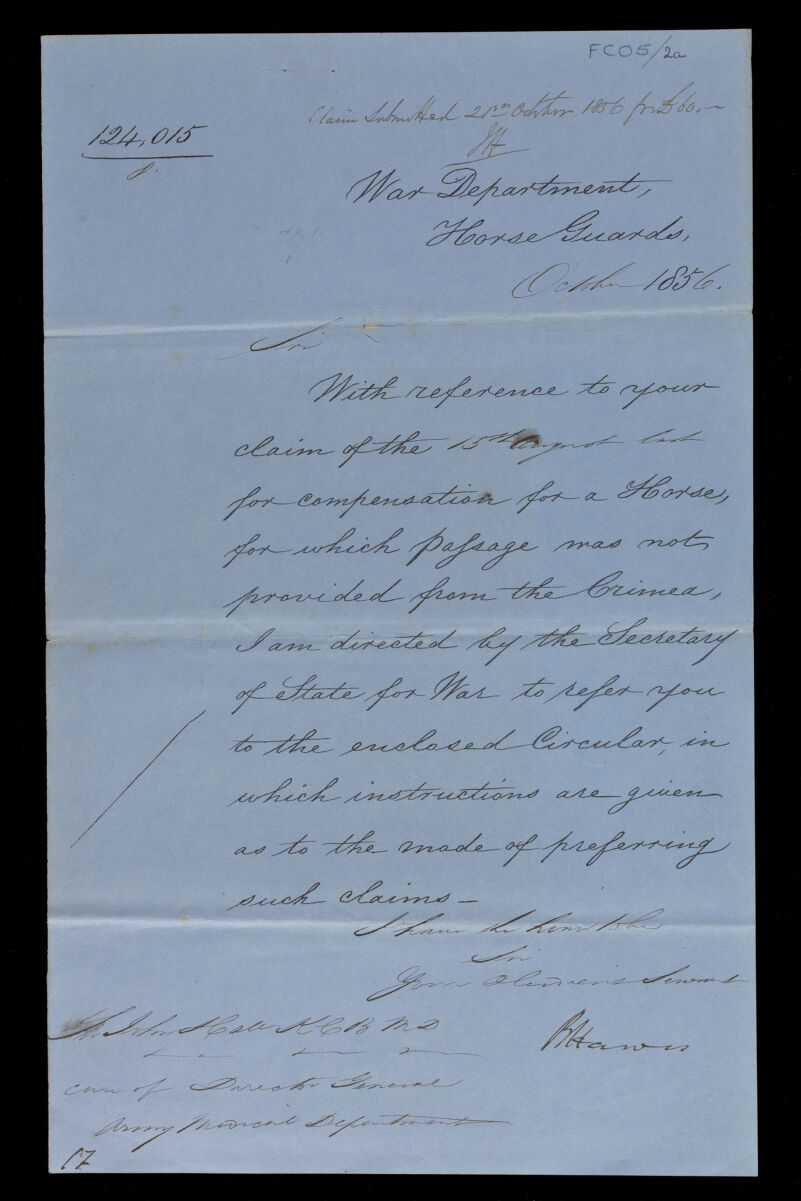 FCO5/2a
Claim Submitted 21st October 1856 for £60.—
JH
124,015
War Department,
Horse Guards,
October 1856.
Sir
With reference to your
claim of the 15th August last
for compensation for a Horse,
for which Passage was not
provided from the Crimea,
I am directed by the Secretary
of State for War to refer you
to the enclosed Circular, in
which instructions are given
as to the mode of preferring
such claims —
I have the honor to be
Sir
Your Obedient Servant
BHawes
Sir John Hall KCB MD
care of Director General
Army Medical Department
17